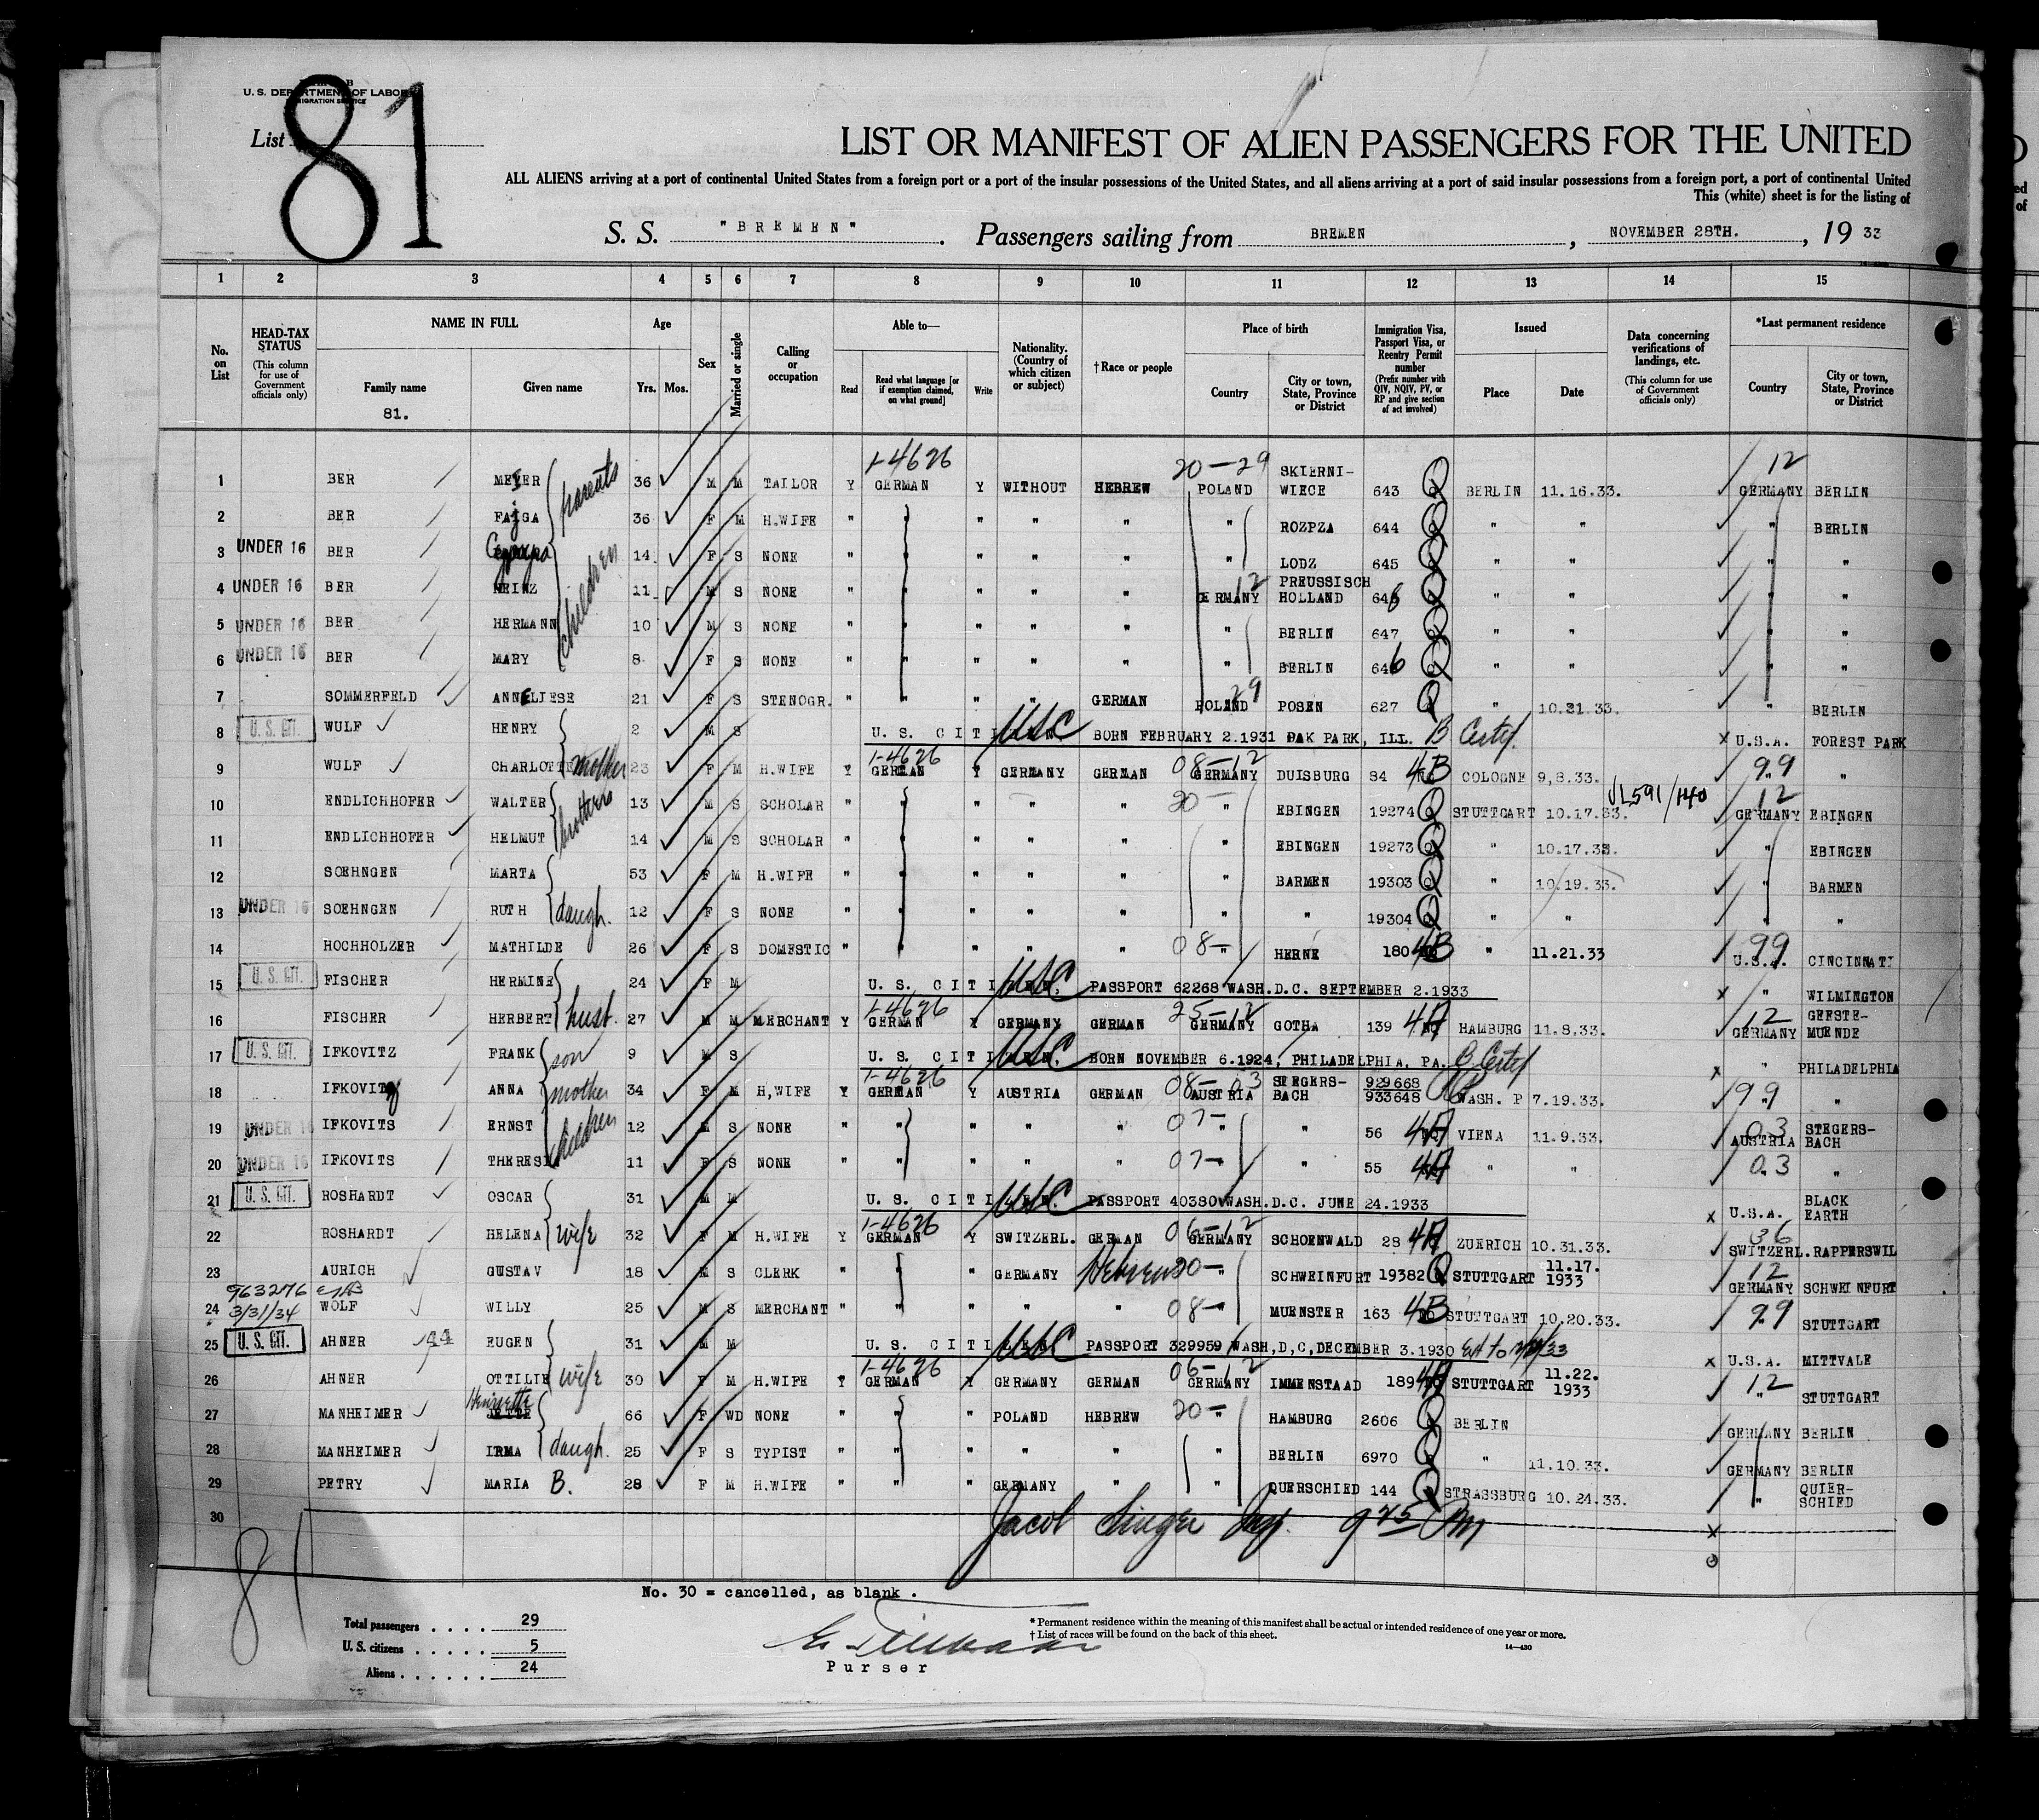 U. S. DEPARTMENT OF LABOR
IMMIGRATION SERVICE
List 81
LIST OR MANIFEST OF ALIEN PASSENGERS FOR THE UNITED
ALL ALIENS arriving at a port of continental United States from a foreign port or a port of the insular possessions of the United States, and all aliens arriving at a port of said insular possessions from a foreign port, a port of continental United
This (white) sheet is for the listing of
S. S. "BREMEN". Passengers sailing from BREMEN, NOVEMBER 28TH., 19 33
1 2 3 4 5 6 7 8 9 10 11 12 13 14 15
No. on List
HEAD-TAX STATUS (This column for use of Government officials only)
NAME IN FULL Family name 81. Given name
Age Yrs. Mos.
Sex
Married or single
Calling or occupation
Able to— Read Read what language [or if exemption claimed, on what ground] Write
Nationality. (Country of which citizen or subject)
†Race or people
Place of birth Country City or town, State, Province or District
Immigration Visa, Passport Visa, or Reentry Permit number (Prefix number with QIV, NQIV, PV, or RP and give section of act involved)
Issued Place Date
Data concerning verifications of landings, etc. (This column for use of Government officials only)
*Last permanent residence Country City or town, State, Province or District
1-4626 20-29 12
1 BER MEYER parents 36 M M TAILOR Y GERMAN Y WITHOUT HEBREW POLAND SKIERNIWIECE 643 Q BERLIN 11.16.33. GERMANY BERLIN
2 BER FAJGA 36 F M H.WIFE " " " " " ROZPZA 644 Q " " " BERLIN
3 UNDER 16 BER children 14 F S NONE " " " " " LODZ 645 Q " " " "
4 UNDER 16 BER HEINZ 11 M S NONE " " " " " GERMANY 12 PREUSSISCH HOLLAND 646 Q " " " "
5 UNDER 16 BER HERMANN 10 M S NONE " " " " " BERLIN 647 Q " " " "
6 UNDER 16 BER MARY 8 F S NONE " " " " " BERLIN Q " " " "
7 SOMMERFELD ANNELIESE 21 F S STENOGR. " " " " GERMAN POLAND 29 POSEN 627 Q " 10.21.33. " BERLIN
8 U.S. CIT. WULF HENRY 2 M S U. S. CITIZEN, USC BORN FEBRUARY 2.1931 OAK PARK, ILL. B Certf. X U.S.A. FOREST PARK
9 WULF CHARLOTTE mother 23 F M H.WIFE Y 1-4626 GERMAN Y GERMANY GERMAN 08-12 GERMANY DUISBURG 84 4B COLOGNE 9,8.33. 99 " "
10 ENDLICHHOFER WALTER brothers 13 M S SCHOLAR " " " " " 20- " EBINGEN 19274 Q STUTTGART 10.17.33. VL591/140 12 GERMANY EBINGEN
11 ENDLICHHOFER HELMUT 14 M S SCHOLAR " " " " " " EBINGEN 19273 Q " 10.17.33. " EBINGEN
12 SOEHNGEN MARTA 53 F M H.WIFE " " " " " " BARMEN 19303 Q " 10.19.33. " BARMEN
13 UNDER 16 SOEHNGEN RUTH daugh. 12 F S NONE " " " " " " " 19304 Q " " " "
14 HOCHHOLZER MATHILDE 26 F S DOMESTIC " " " " " 08- " HERNE 180 4B " 11.21.33 99 U.S.A. CINCINNATI
15 U.S. CIT. FISCHER HERMINE 24 F M U. S. CITIZEN, USC PASSPORT 62268 WASH.D.C. SEPTEMBER 2.1933 X " WILMINGTON
16 FISCHER HERBERT hust. 27 M M MERCHANT Y 1-4626 GERMAN Y GERMANY GERMAN 25-12 GERMANY GOTHA 139 4A HAMBURG 11.8.33. 12 GERMANY GEESTEMUENDE
17 U.S. CIT. IFKOVITZ FRANK son 9 M S U. S. CITIZEN, USC BORN NOVEMBER 6.1924, PHILADELPHIA, PA. B Certf X " PHILADELPHIA
18 IFKOVITS ANNA mother 34 F M H,WIFE Y 1-4626 GERMAN Y AUSTRIA GERMAN 08-03 AUSTRIA STEGERSBACH 929668 933648 RP WASH. P 7.19.33. 99 " "
19 UNDER 16 IFKOVITS ERNST children 12 M S NONE " " " " " 07- " " 56 4A VIENA 11.9.33. 03 AUSTRIA STEGERSBACH
20 UNDER 16 IFKOVITS THERESIA 11 F S NONE " " " " " 07- " " 55 4A " " 03 "
21 U.S. CIT. ROSHARDT OSCAR 31 M M U. S. CITIZEN, USC PASSPORT 40380 WASH.D.C. JUNE 24.1933 X U.S.A. BLACK EARTH
22 ROSHARDT HELENA wife 32 F M H.WIFE Y 1-4626 GERMAN Y SWITZERL. GERMAN 06-12 GERMANY SCHOENWALD 28 4A ZUERICH 10.31.33. 36 SWITZERL. RAPPERSWIL
23 AURICH GUSTAV 18 M S CLERK " " " GERMANY Hebrew 20- " SCHWEINFURT 19382 Q STUTTGART 11.17. 1933 12 GERMANY SCHWEINFURT
963276 3/31/34
24 WOLF WILLY 25 M S MERCHANT " " " " " 08- " MUENSTER 163 4B STUTTGART 10.20.33. 99 " STUTTGART
25 U.S. CIT. AHNER 44 EUGEN 31 M M U. S. CITIZEN USC PASSPORT 329959 WASH,D,C,DECEMBER 3.1930 Ext to X U.S.A. MITTVALE
26 AHNER OTTILIE wife 30 F M H.WIFE Y 1-4626 GERMAN Y GERMANY GERMAN 06-12 GERMANY IMMENSTAAD 189 4A STUTTGART 11.22. 1933 12 " STUTTGART
27 MANHEIMER Henriette 66 F WD NONE " " " POLAND HEBREW 20- " HAMBURG 2606 Q BERLIN GERMANY BERLIN
28 MANHEIMER IRMA daugh. 25 F S TYPIST " " " " " " BERLIN 6970 Q " 11.10.33. GERMANY BERLIN
29 PETRY MARIA B. 28 F M H.WIFE " " " GERMANY " " QUERSCHIED 144 Q STRASSBURG 10.24.33. " QUIERSCHIED
30 Jacob Singer Insp. 9 25 PM X
81
No. 30 = cancelled, as blank.
Total passengers . . . . 29
U. S. citizens . . . . . 5
Aliens . . . . . . 24
Purser
* Permanent residence within the meaning of this manifest shall be actual or intended residence of one year or more.
† List of races will be found on the back of this sheet.
14—430